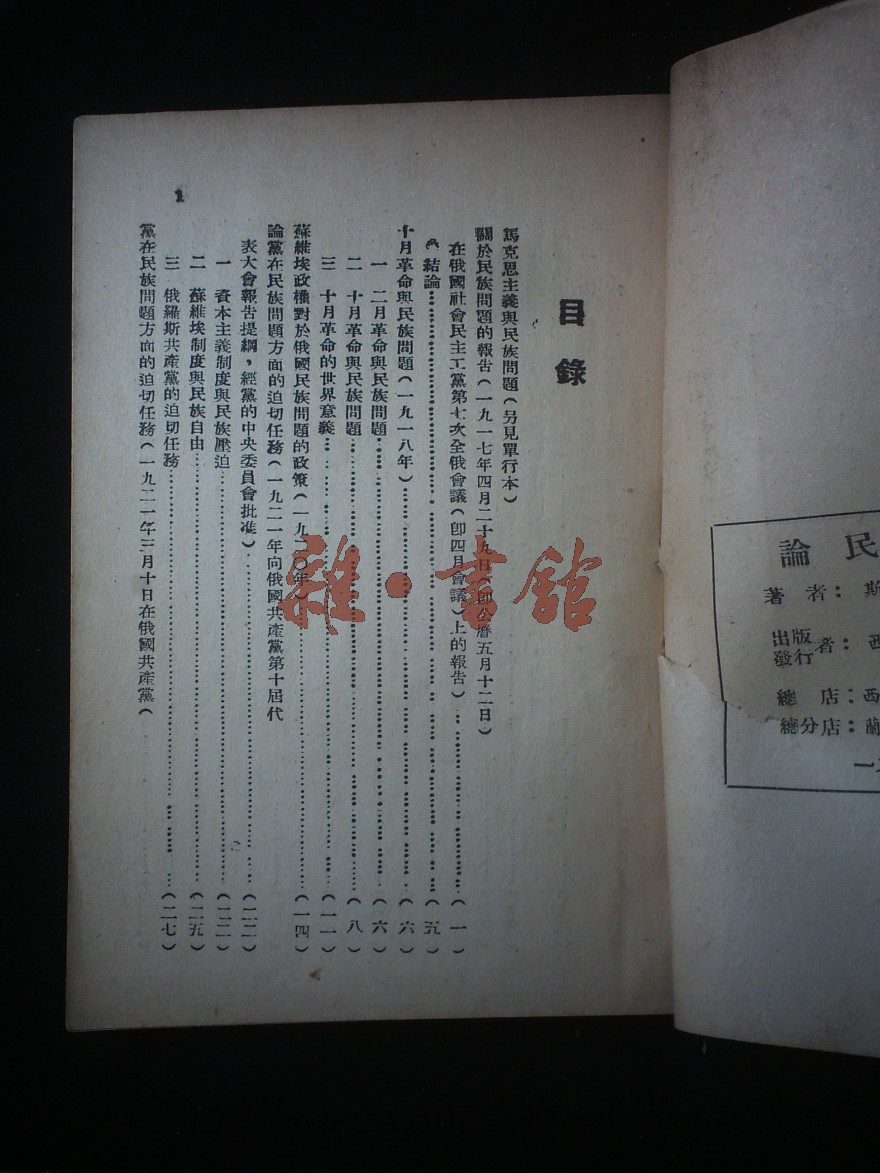 論民
著者：斯
出版
發行者：西
總店：西
總分店：蘭
一九
目錄
馬克思主義與民族問題(另見單行本)
關於民族問題的報告(一九一七年四月二十九日(即公曆五月十二日)
在俄國社會民主工黨第七次全俄會議(卽四月會議)上的報告)……(一)
結論……(五)
十月革命與民族問題(一九一八年)……(六)
一 二月革命與民族問題……(六)
二 十月革命與民族問題……(八)
三 十月革命的世界意義……(一一)
蘇維埃政權對於俄國民族問題的政策(一九二〇年)……(一四)
論黨在民族問題方面的迫切任務(一九二一年向俄國共產黨第十屆代
表大會報告提綱，經黨的中央委員會批准)……(二二)
一 資本主義制度與民族壓迫……(二二)
二 蘇維埃制度與民族自由……(二五)
三 俄羅斯共產黨的迫切任務……(二七)
黨在民族問題方面的迫切任務(一九二一年三月十日在俄國共產黨(
1
雜·書館